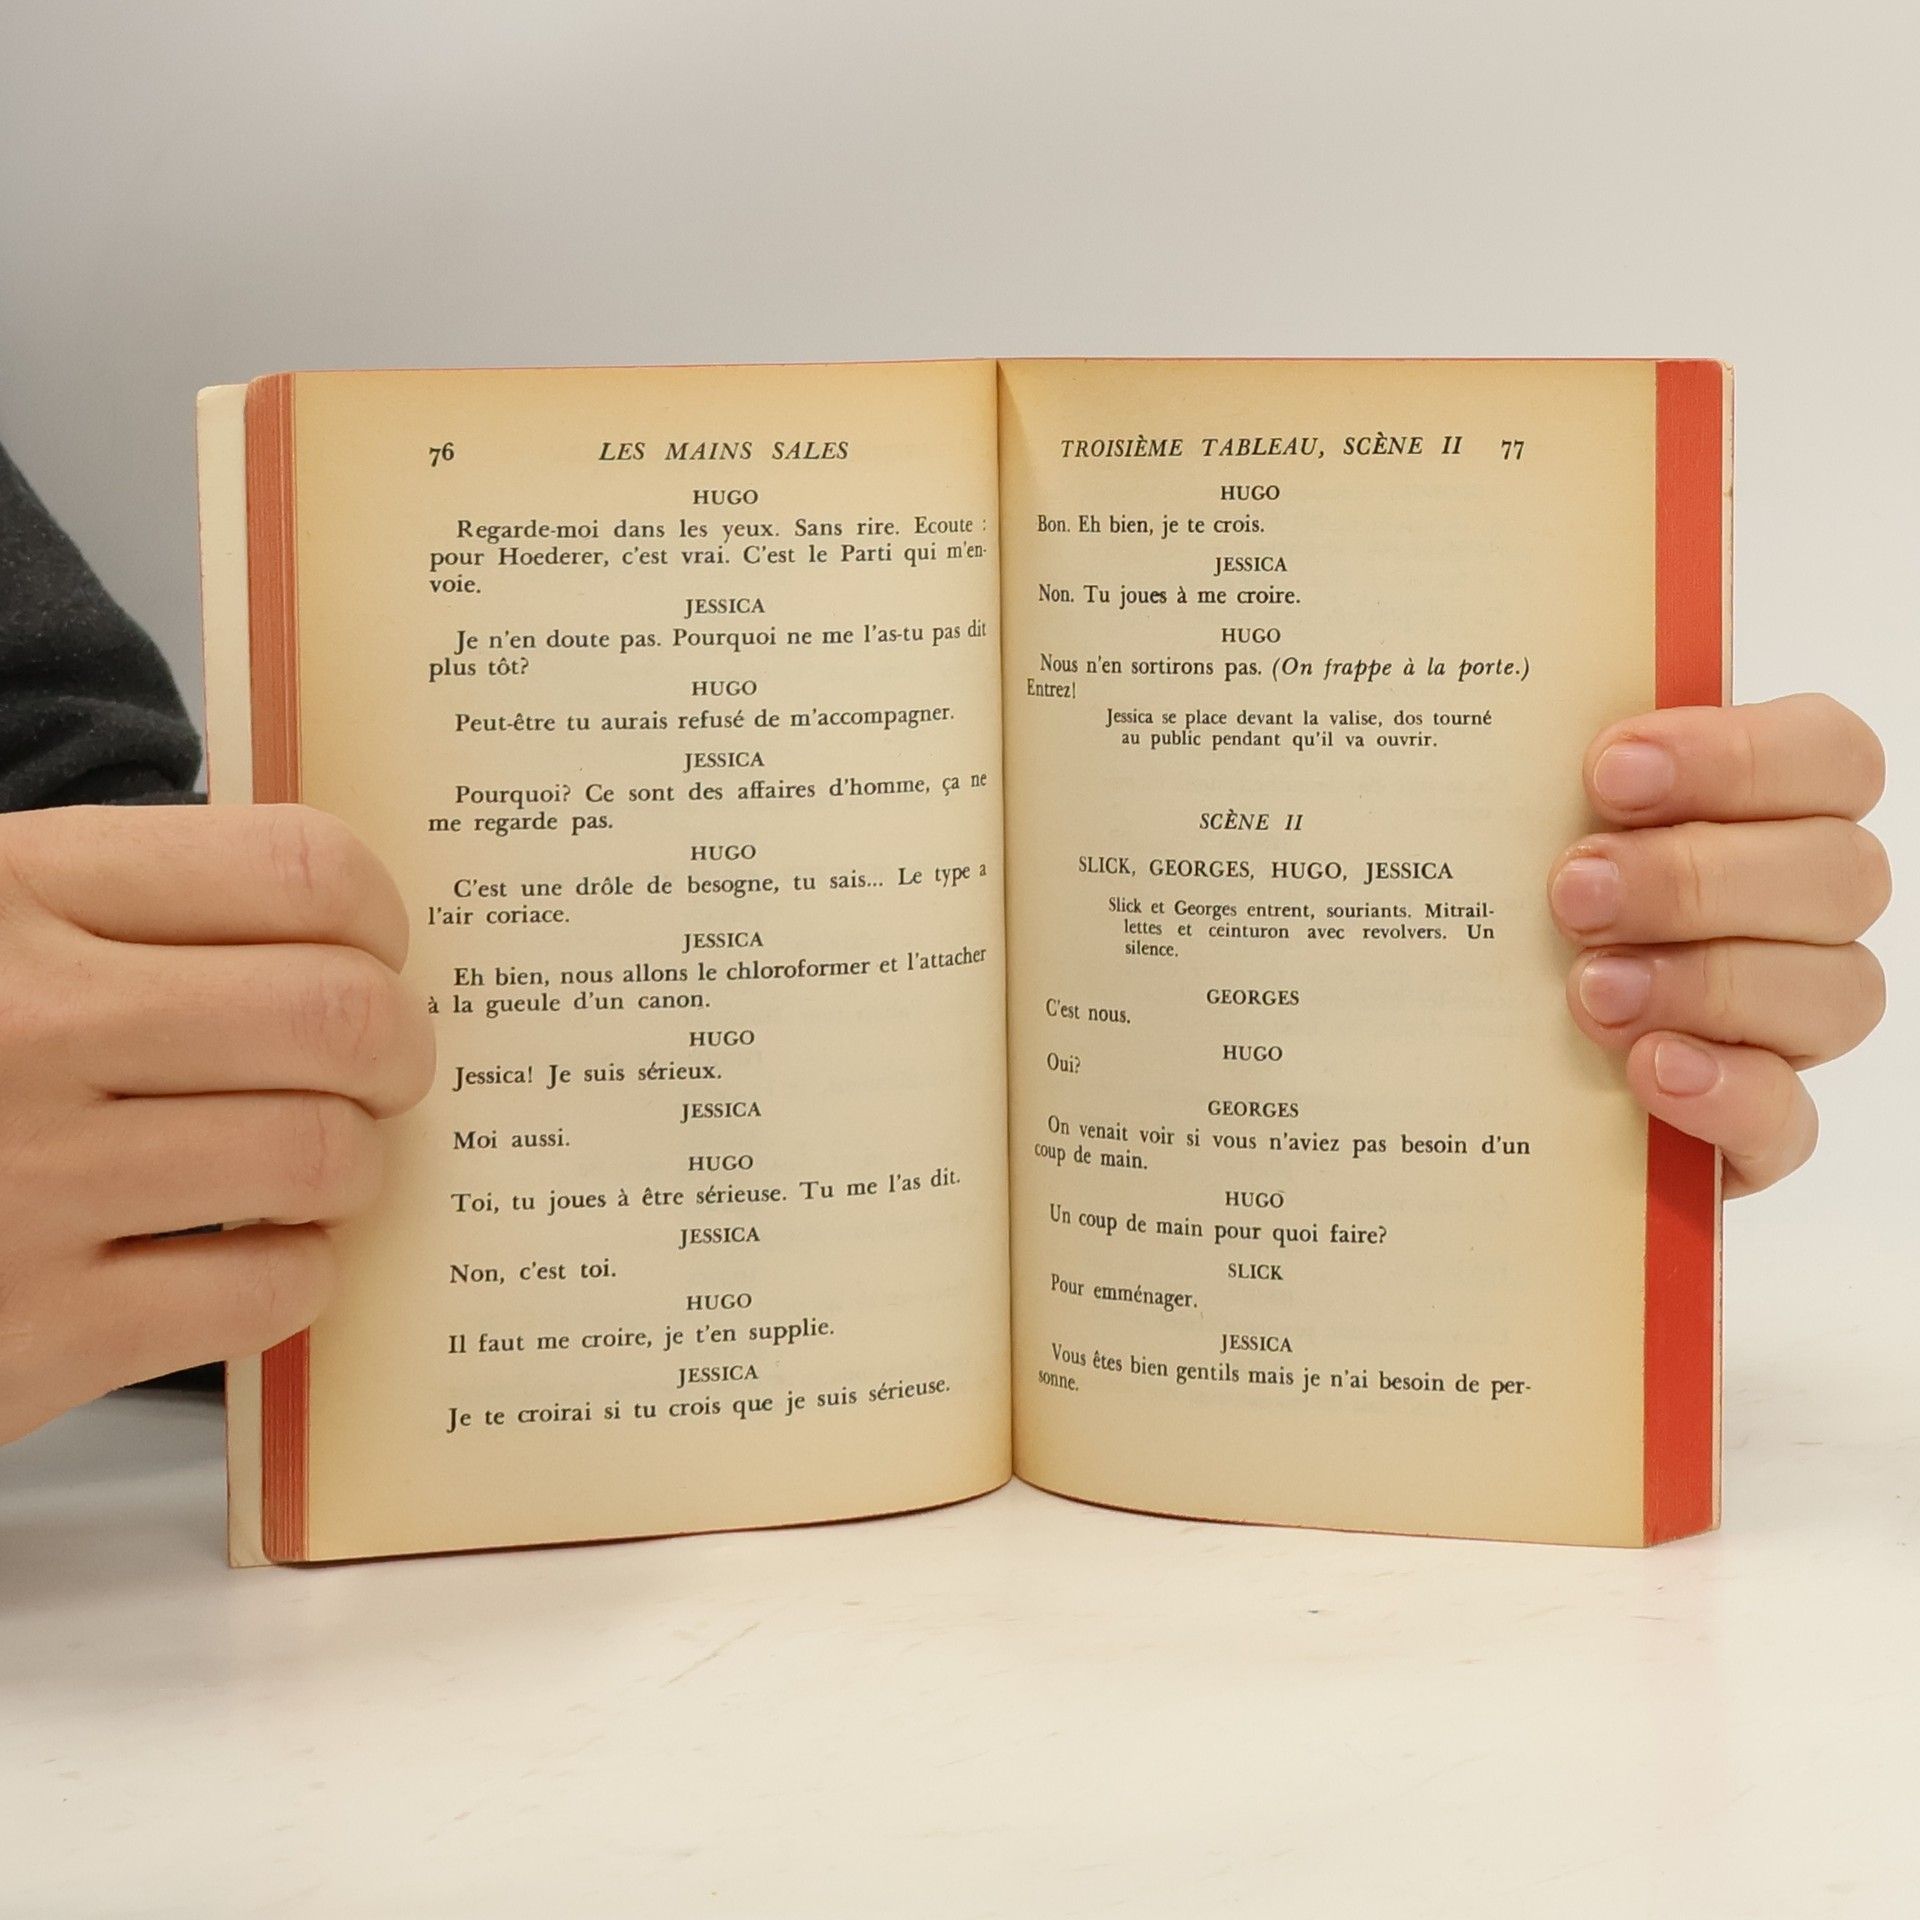 76 LES MAINS SALES
HUGO
Regarde-moi dans les yeux. Sans rire. Ecoute :
pour Hoederer, c'est vrai. C'est le Parti qui m'en-
voie.
JESSICA
Je n'en doute pas. Pourquoi ne me l'as-tu pas dit
plus tôt?
HUGO
Peut-être tu aurais refusé de m'accompagner.
JESSICA
Pourquoi? Ce sont des affaires d'homme, ça ne
me regarde pas.
HUGO
C'est une drôle de besogne, tu sais... Le type a
l'air coriace.
JESSICA
Eh bien, nous allons le chloroformer et l'attacher
à la gueule d'un canon.
HUGO
Jessica! Je suis sérieux.
JESSICA
Moi aussi.
HUGO
Toi, tu joues à être sérieuse. Tu me l'as dit.
JESSICA
Non, c'est toi.
HUGO
Il faut me croire, je t'en supplie.
JESSICA
Je te croirai si tu crois que je suis sérieuse.
TROISIÈME TABLEAU, SCÈNE II 77
HUGO
Bon. Eh bien, je te crois.
JESSICA
Non. Tu joues à me croire.
HUGO
Nous n'en sortirons pas. (On frappe à la porte.)
Entrez!
Jessica se place devant la valise, dos tourné
au public pendant qu'il va ouvrir.
SCÈNE II
SLICK, GEORGES, HUGO, JESSICA
Slick et Georges entrent, souriants. Mitrail-
lettes et ceinturon avec revolvers. Un
silence.
GEORGES
C'est nous.
HUGO
Oui?
GEORGES
On venait voir si vous n'aviez pas besoin d'un
coup de main.
HUGO
Un coup de main pour quoi faire?
SLICK
Pour emménager.
JESSICA
Vous êtes bien gentils mais je n'ai besoin de per-
sonne.